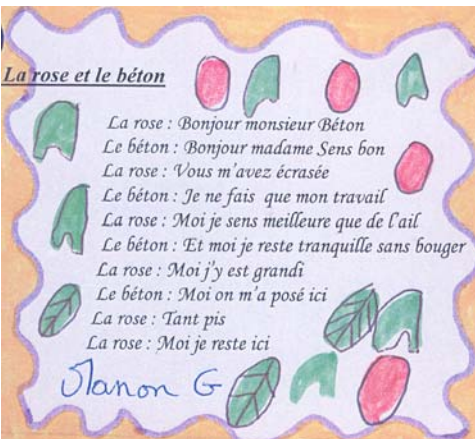 La rose et le béton
La rose : Bonjour monsieur Béton
Le béton : Bonjour madame Sens bon
La rose : Vous m'avez écrasée
Le béton : Je ne fais que mon travail
La rose : Moi je sens meilleure que de l'ail
Le béton : Et moi je reste tranquille sans bouger
La rose : Moi j'y est grandi
Le béton : Moi on m'a posé ici
La rose : Tant pis
La rose : Moi je reste ici
Manon G